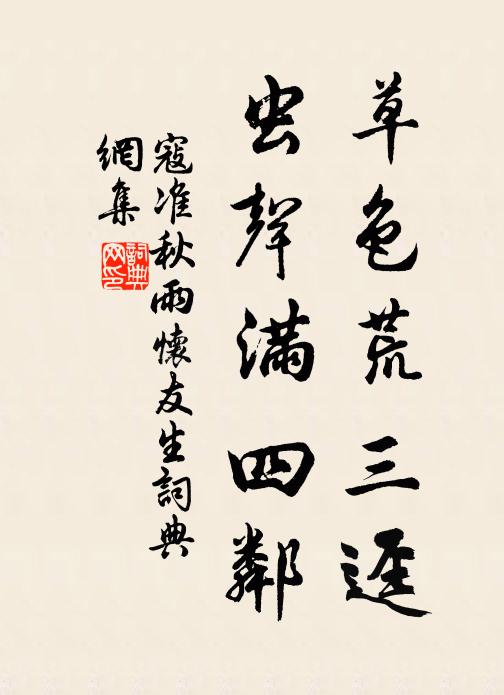 草色荒三逕
虫聲滿四鄰
寇准秋雨懷友生詞典
網集
詞典
网印